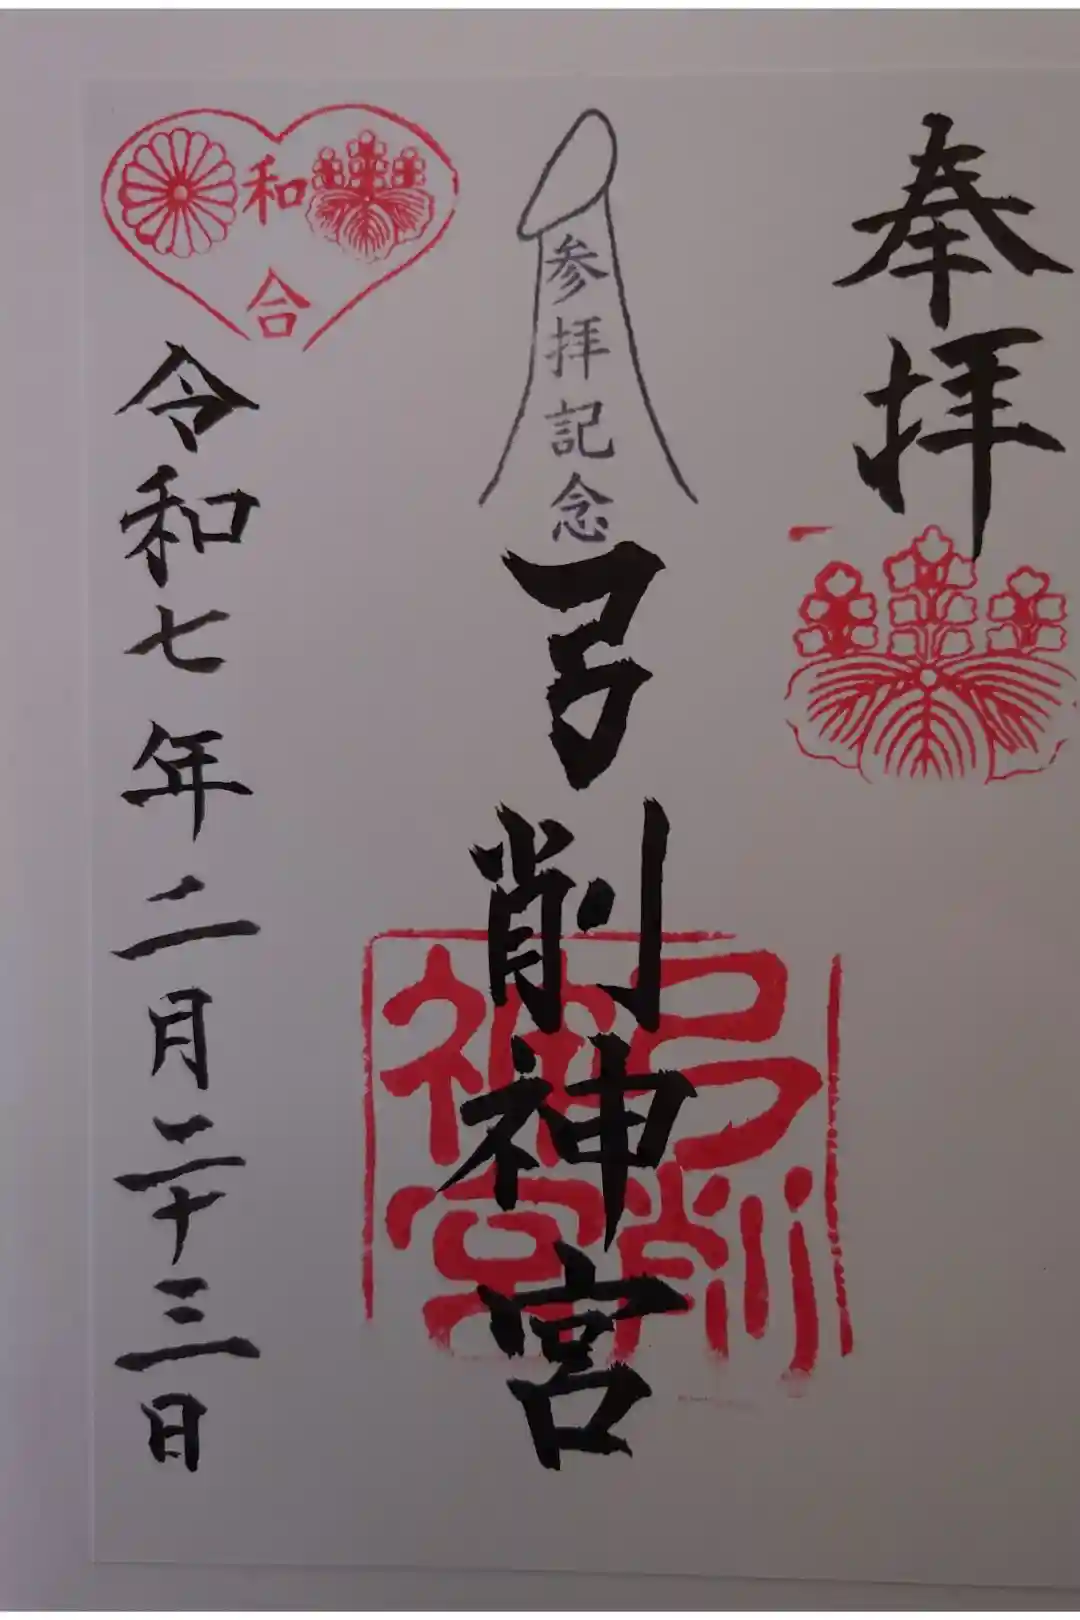 奉拝
参拝記念
弓削神宮
弓削
神宮
和
合
令和七年二月二十三日